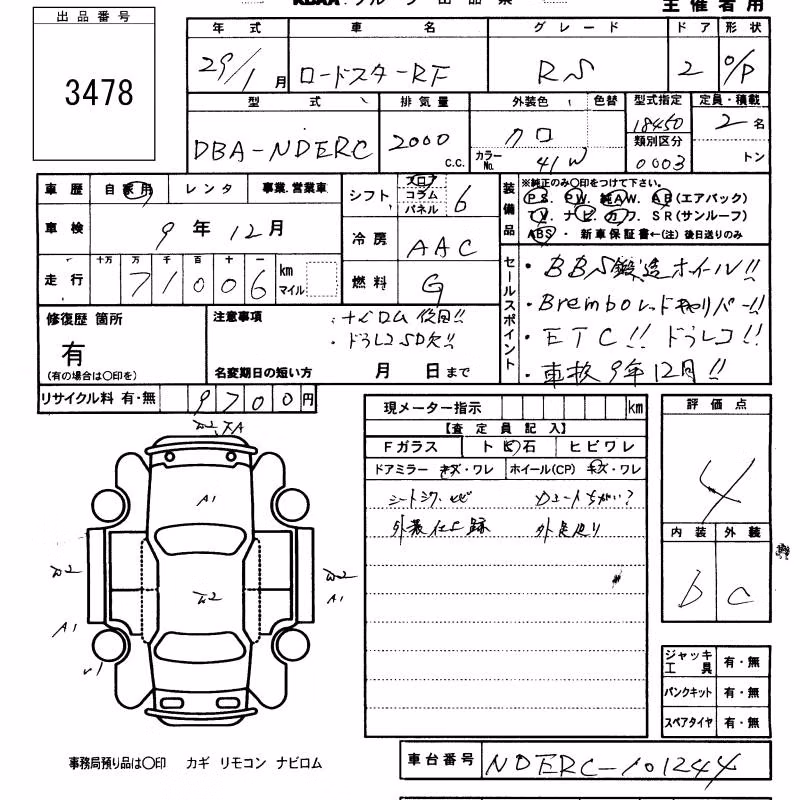 主催者用
出品番号
3478
年式 車名 グレード ドア 形状
29/1月 ロードスターRF RS 2 O/P
型式 排気量 外装色 色替 型式指定 定員・積載
DBA-NDERC 2000 c.c. クロ 18450 2名
カラーNo. 41W 類別区分 0003 トン
車歴 自家用 レンタ 事業.営業車
シフト フロア コラム パネル 6
装備品 ※純正のみ〇印をつけて下さい。
PS. PW. 純AW. AB(エアバック)
TV. ナビ. カワ. SR(サンルーフ)
ABS・新車保証書←(注)後日送りのみ
車検 9年12月
冷房 AAC
走行 十万 万 千 百 十 一 km マイル
71006
燃料 G
セールスポイント
・BBS鍛造ホイール!!
・Bremboレッドキャリパー!!
・ETC!! ドラレコ!!
・車検9年12月!!
修復歴 箇所
有
(有の場合は〇印を)
注意事項
・ナビロム後日!!
・ドラレコSD欠!!
名変期日の短い方 月 日まで
リサイクル料 有・無 9700円
現メーター指示 km
【査定員記入】
Fガラス トビ石 ヒビワレ
ドアミラー キズ・ワレ ホイール(CP) キズ・ワレ
シートシワ
評価点
4
内装 外装
b c
A1
A1
A1
ジャッキ 工具 有・無
パンクキット 有・無
スペアタイヤ 有・無
車台番号 NDERC-101244
事務局預り品は〇印 カギ リモコン ナビロム